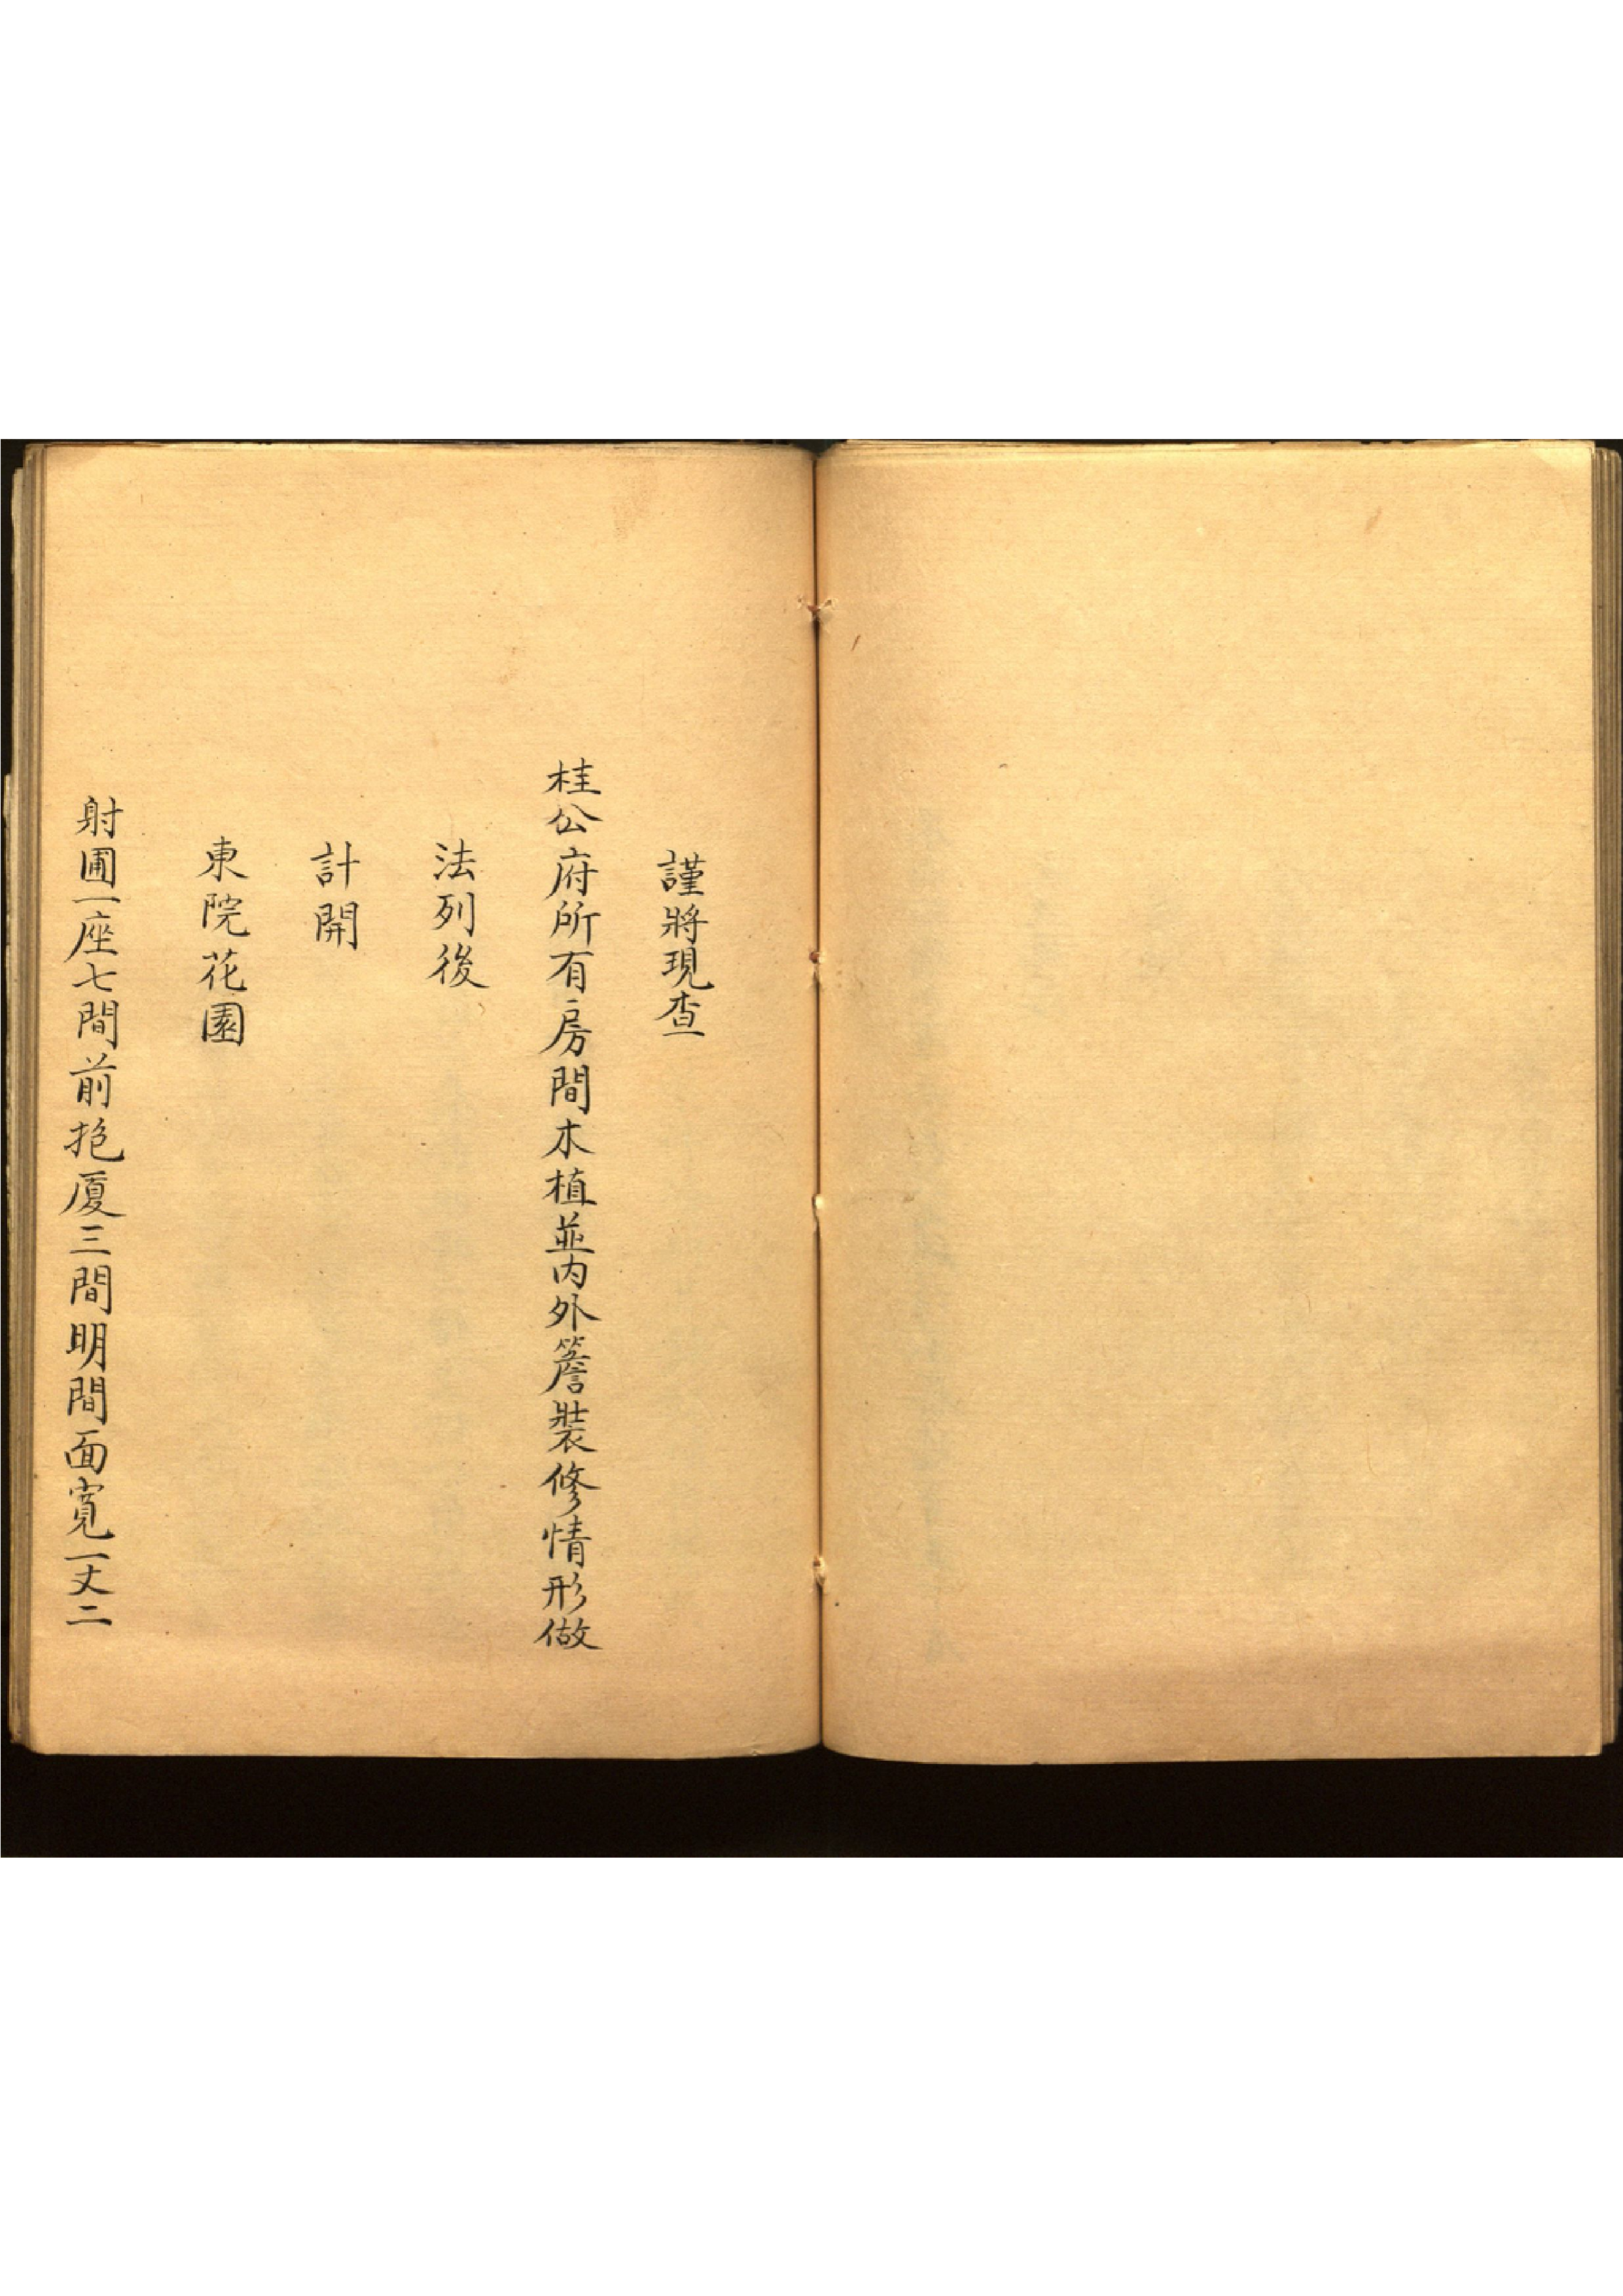 謹將現查
桂公府所有房間木植並內外簷裝修情形做
法列後
計開
東院花園
射圃一座七間前抱厦三間明間面寬一丈二